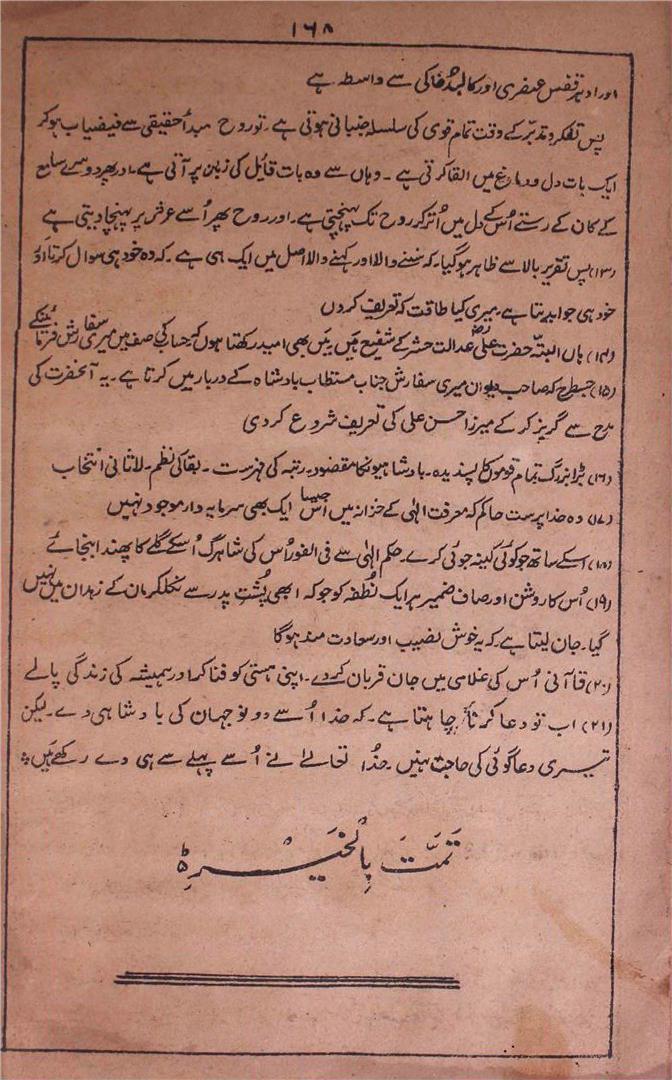 ۱۶۸
اور ادہر قفس عنصری اور کالبد خاکی سے واسطہ ہے
پس تفکر و تدبّر کے وقت تمام قوی کی سلسلہ جنبانی ہوتی ہے۔ تو روح مبدأ حقیقی سے فیضیاب ہو کر
ایک بات دل و دماغ میں القا کرتی ہے۔ وہاں سے وہ بات قائل کی زبان پر آتی ہے۔ اور پھر دوسرے سامع
کے کان کے رستے اُس کے دل میں اُتر کر روح تک پہنچتی ہے۔ اور روح پھر اُسے عرش پر پہنچا دیتی ہے
(۱۳) پس تقریر بالا سے ظاہر ہو گیا۔ کہ سننے والا اور کہنے والا اصل میں ایک ہی ہے۔ کہ وہ خود ہی سوال کرتا اَور
خود ہی جواب دیتا ہے۔ میری کیا طاقت کہ تعریف کروں
(۱۴) ہاں البتہ حضرت علیؓ عدالت حشر کے شفیع ہَیں مَیں بھی امید رکھتا ہوں کہ حساب کی صف میں میری سفارش فرمائینگے
(۱۵) جسطرح کہ صاحب دیوان میری سفارش جناب مستطاب بادشاہ کے دربار میں کرتا ہے۔ یہ آنحضرت کی
مدح سے گریز کر کے میرزا حسن علی کی تعریف شروع کر دی
(۱۶) بڑا بزرگ تمام قوموں کا پسندیدہ۔ بادشاہیوں کا مقصود۔ رتبہ کی فہرست۔ بقا کی نظم۔ لاثانی انتخاب
(۱۷) وہ خدا پرست حاکم کہ معرفت الٰہی کے خزانہ میں اُس جیسا ایک بھی سرمایہ دار موجود نہیں
(۱۸) اُسکے ساتھ جو کوئی کینہ جوئی کرے۔ حکم الٰہی سے فی الفور اُس کی شاہرگ اُسکے گلے کا پھندا بنجائے
(۱۹) اُس کا روشن اور صاف ضمیر ہر ایک نُطفہ کو جو کہ ابھی پُشتِ پدر سے نکلکر ماں کے زہدان میں نہیں
گیا۔ جان لیتا ہے۔ کہ یہ خوش نصیب اور سعادت مند ہو گا
(۲۰) قاآنی اُس کی غلامی میں جان قربان کر دے۔ اپنی ہستی کو فنا کر اور ہمیشہ کی زندگی پا لے
(۲۱) اب تو دعا کرنا چاہتا ہے۔ کہ خدا اُسے دونو جہان کی بادشاہی دے۔ لیکن
تیسری دعا گوئی کی حاجت نہیں۔ خُدا تعالےٰ نے اُسے پہلے سے ہی دے رکھے ہَیں
تَمَّت بِالخَیر